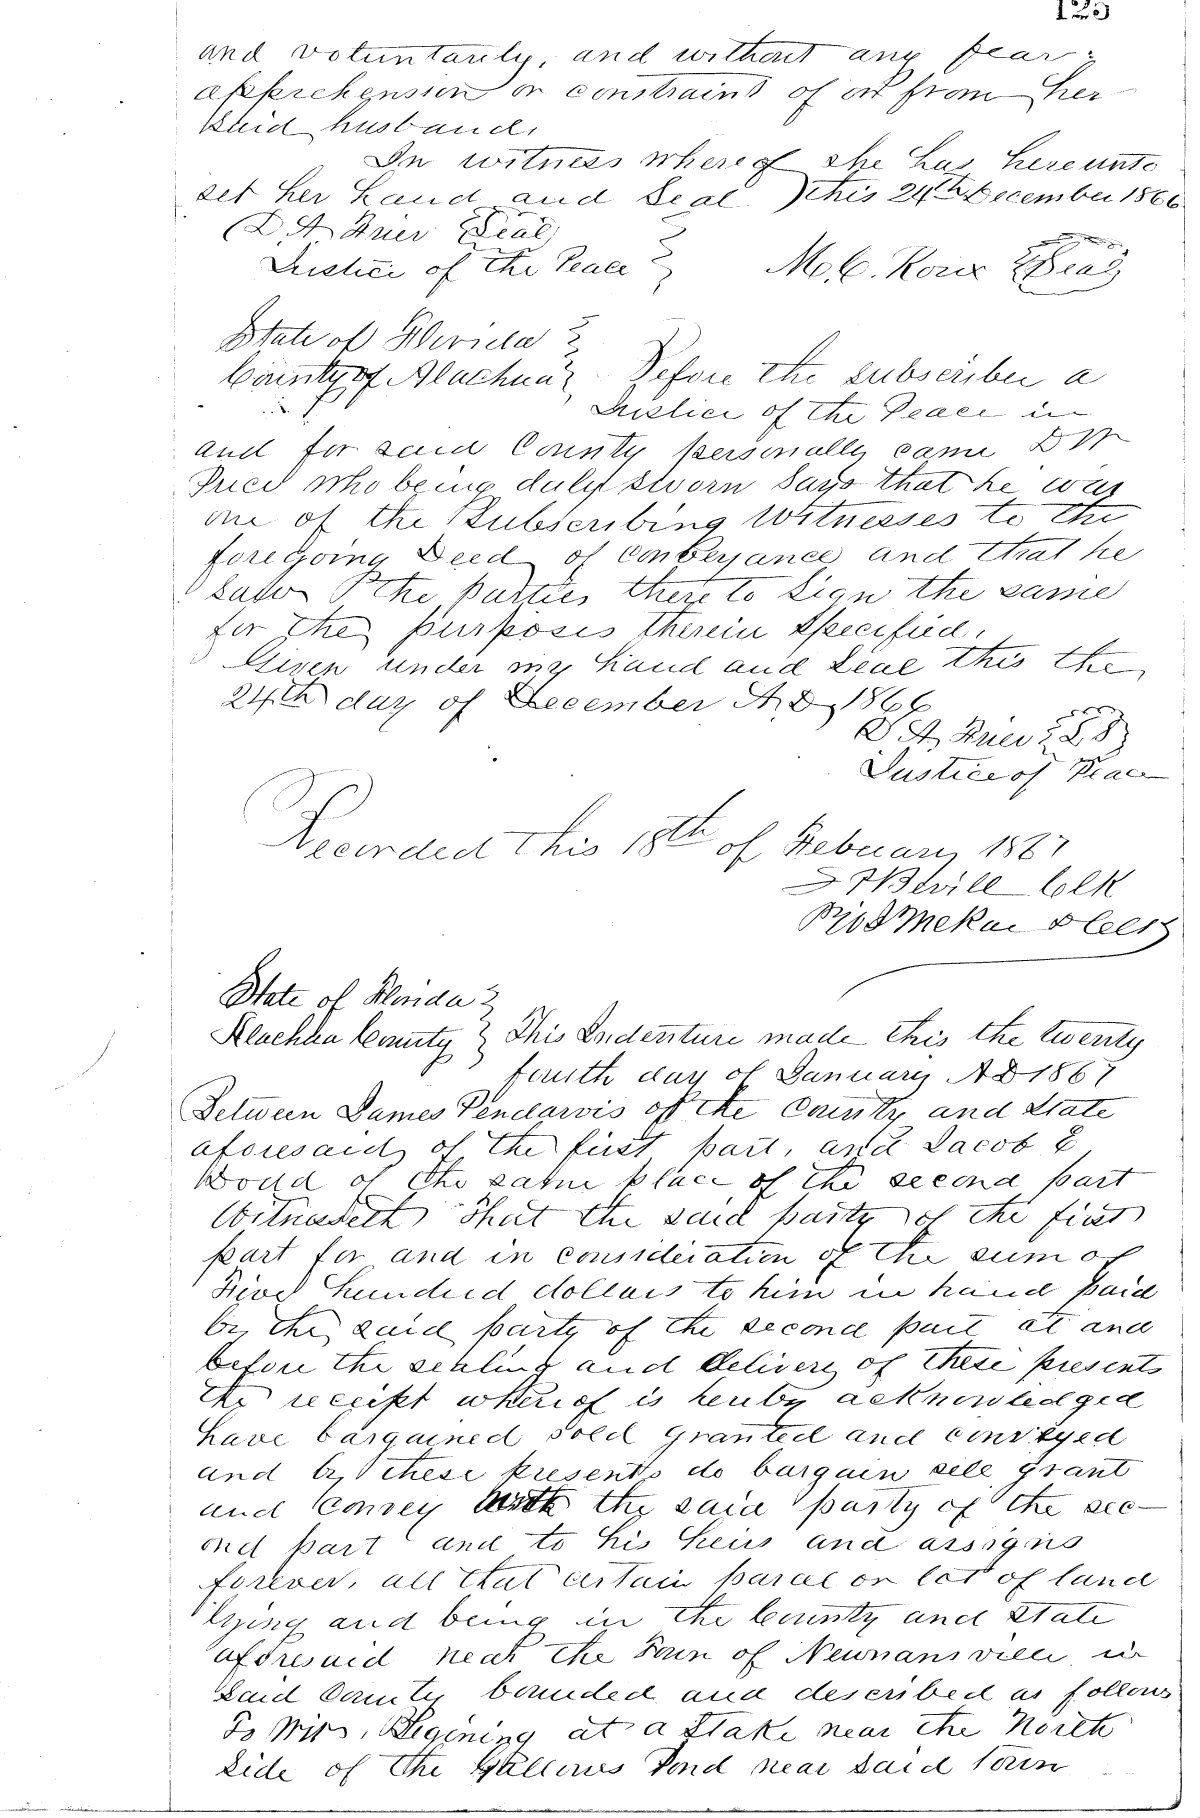 125
and voluntarily, and without any fear
apprehension or constraint of or from her
said husband.
In witness whereof she has hereunto
set her hand and Seal } this 24th December 1866
D. A. Seal
Justice of the Peace } M. C. Roux Seal
State of Florida }
County of Alachua } Before the subscriber a
Justice of the Peace in
and for said County personally came D W
Price who being duly sworn Says that he was
one of the Subscribing Witnesses to the
foregoing Deed of Conveyance and that he
saw the parties thereto Sign the same
for the purposes therein Specified.
Given under my hand and Seal this the
24th day of December A. D. 1866
D. A. L S
Justice of Peace
Recorded this 18th of Febuary 1867
Clk

State of Florida }
Alachua County } This Indenture made this the twenty
fourth day of January A D 1867
Between James Pendarvis of the County and State
aforesaid of the first part, and Jacob E
Wood of the same place of the second part
Witnesseth That the said party of the first
part for and in consideration of the sum of
Five hundred dollars to him in hand paid
by the said party of the second part at and
before the sealing and delivery of these presents
the receipt whereof is hereby acknowledged
have bargained sold granted and conveyed
and by these presents do bargain sell grant
and convey the said party of the sec-
ond part and to his heirs and assigns
forever, all that certain parcel or lot of land
lying and being in the County and State
aforesaid near the Town of Newnansville in
said County bounded and described as follows
To Wit. Begining at a Stake near the North
Side of the Gallows Pond near said Town